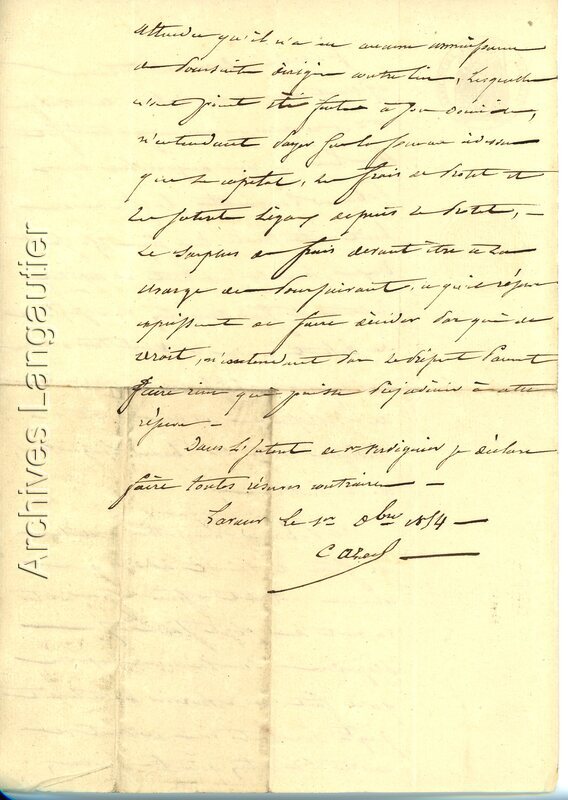 attendu qu'il n'a eu aucune connaissance
de poursuite dirigée contre lui, lesquelles
n'ont point été faites à son domicile,
n'entendant payer que la somme ci-dessus
que le capital, les frais de protêt et
les intérêts légaux depuis le protêt, —
le surplus de frais devant être à la
charge du poursuivant, ce qu'il réserve
expressément de faire décider par qui de
droit, n'entendant par le dépôt
faire rien qui puisse préjudicier à cette
réserve —
Dans l'intérêt de Mr Verdiguier je déclare
faire toutes réserves contraires —
Lavaur le 1er 8bre 1854 —
Archives Langautier